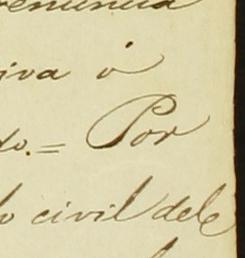 renuncia
iva ó
do.= Por
lo civil dele